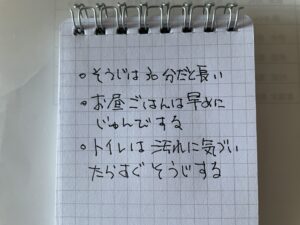 ○そうじは30分だと長い
○お昼ごはんは早めに
じゅんびする
○トイレは汚れに気づい
たらすぐそうじする